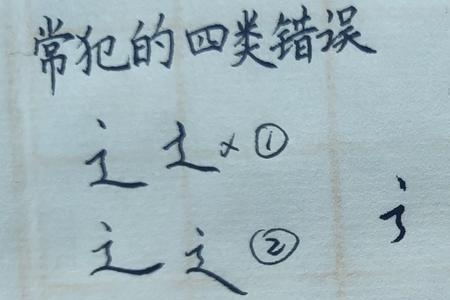 常犯的四类错误
辶 辶 × ①
辶 辶 ②